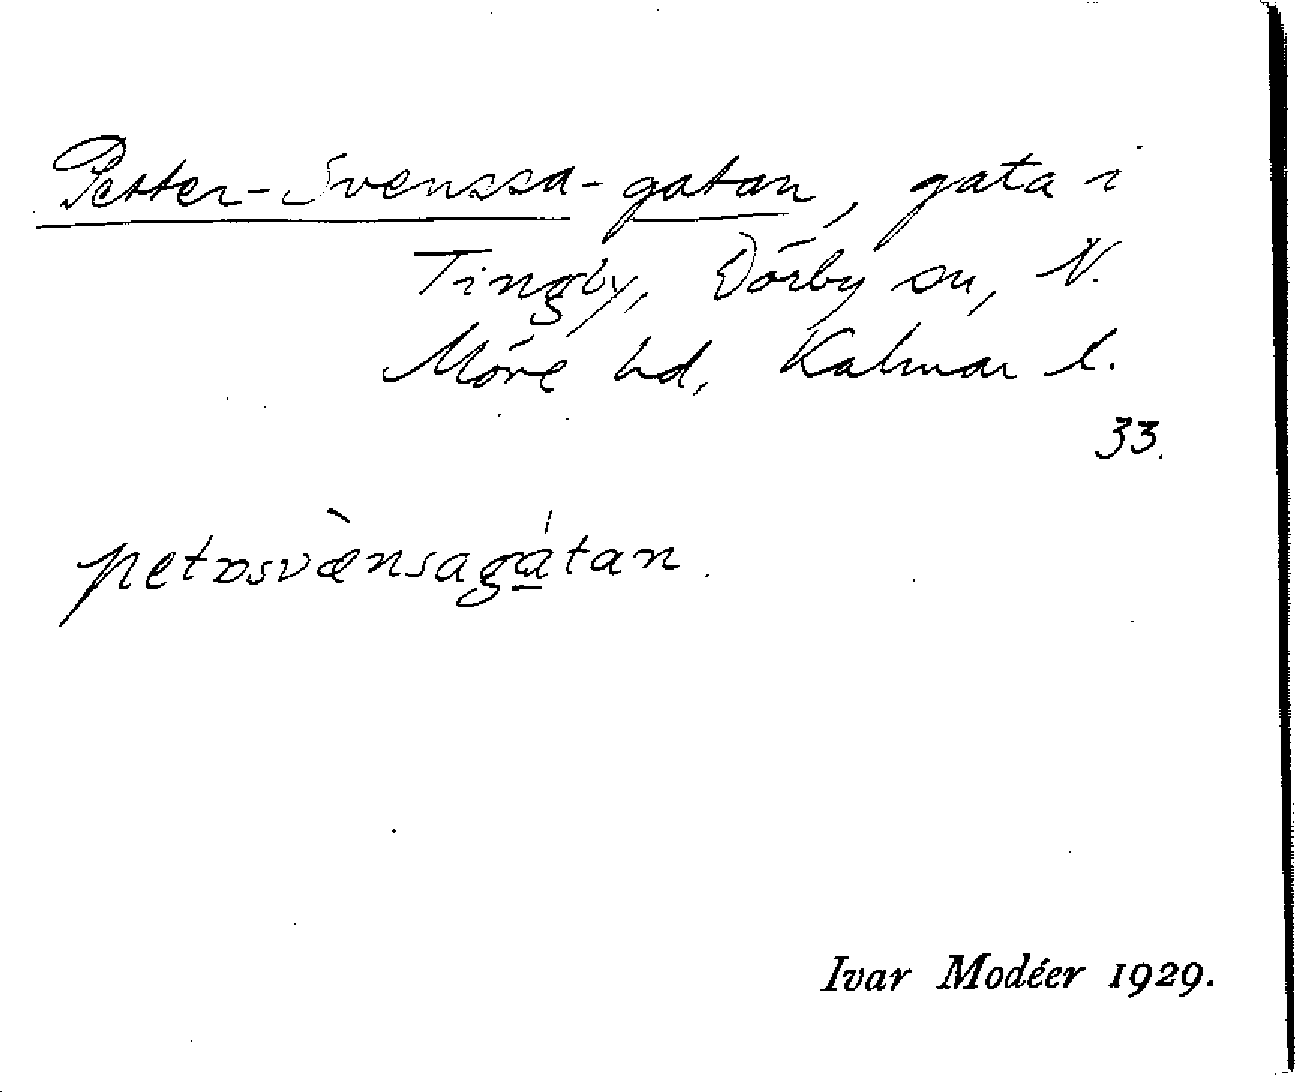 Petter-Svenssa-gatan, gata i
Tingby, Dörby sn, N.
Möre hd, Kalmar l.
33.
petɒsvænsagátan.
Ivar Modéer 1929.